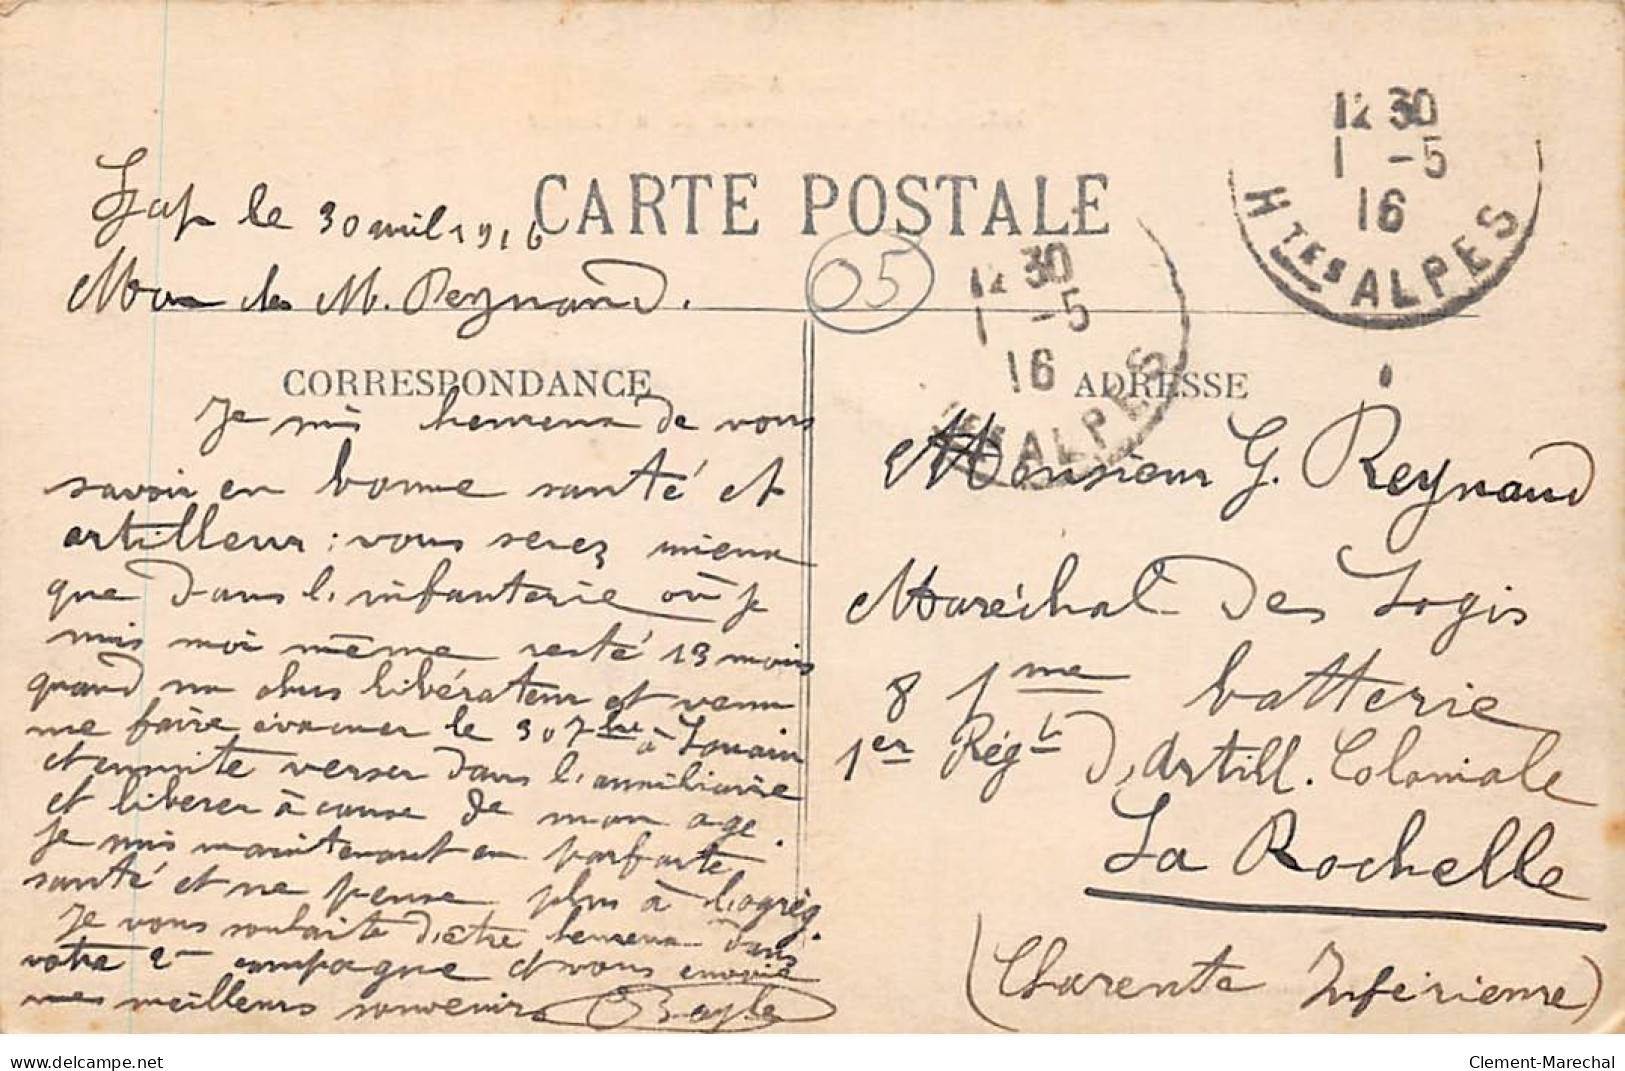 Gap le 30 avril 1916
Mon M. Reynaud.
CARTE POSTALE
12 30
1 -5
16
Htes ALPES
12 30
1 -5
16
Htes ALPES
05
CORRESPONDANCE
Je suis heureux de vous
savoir en bonne santé et
artilleur : vous serez mieux
que dans l'infanterie où je
suis moi même resté 13 mois
quand un obus libérateur est venu
me faire évacuer le à
et ensuite verser dans l'auxiliaire
et libérer à cause de mon age.
Je suis maintenant en parfaite
santé et ne pense plus à
Je vous souhaite d'être heureux dans
votre 2e campagne et vous envoie
mes meilleurs souvenirs Bayle
ADRESSE
Monsieur G. Reynaud
Maréchal des Logis
batterie
1er Régt d'Artill. Coloniale
La Rochelle
(Charente Inférieure)
www.delcampe.net
Clement-Marechal